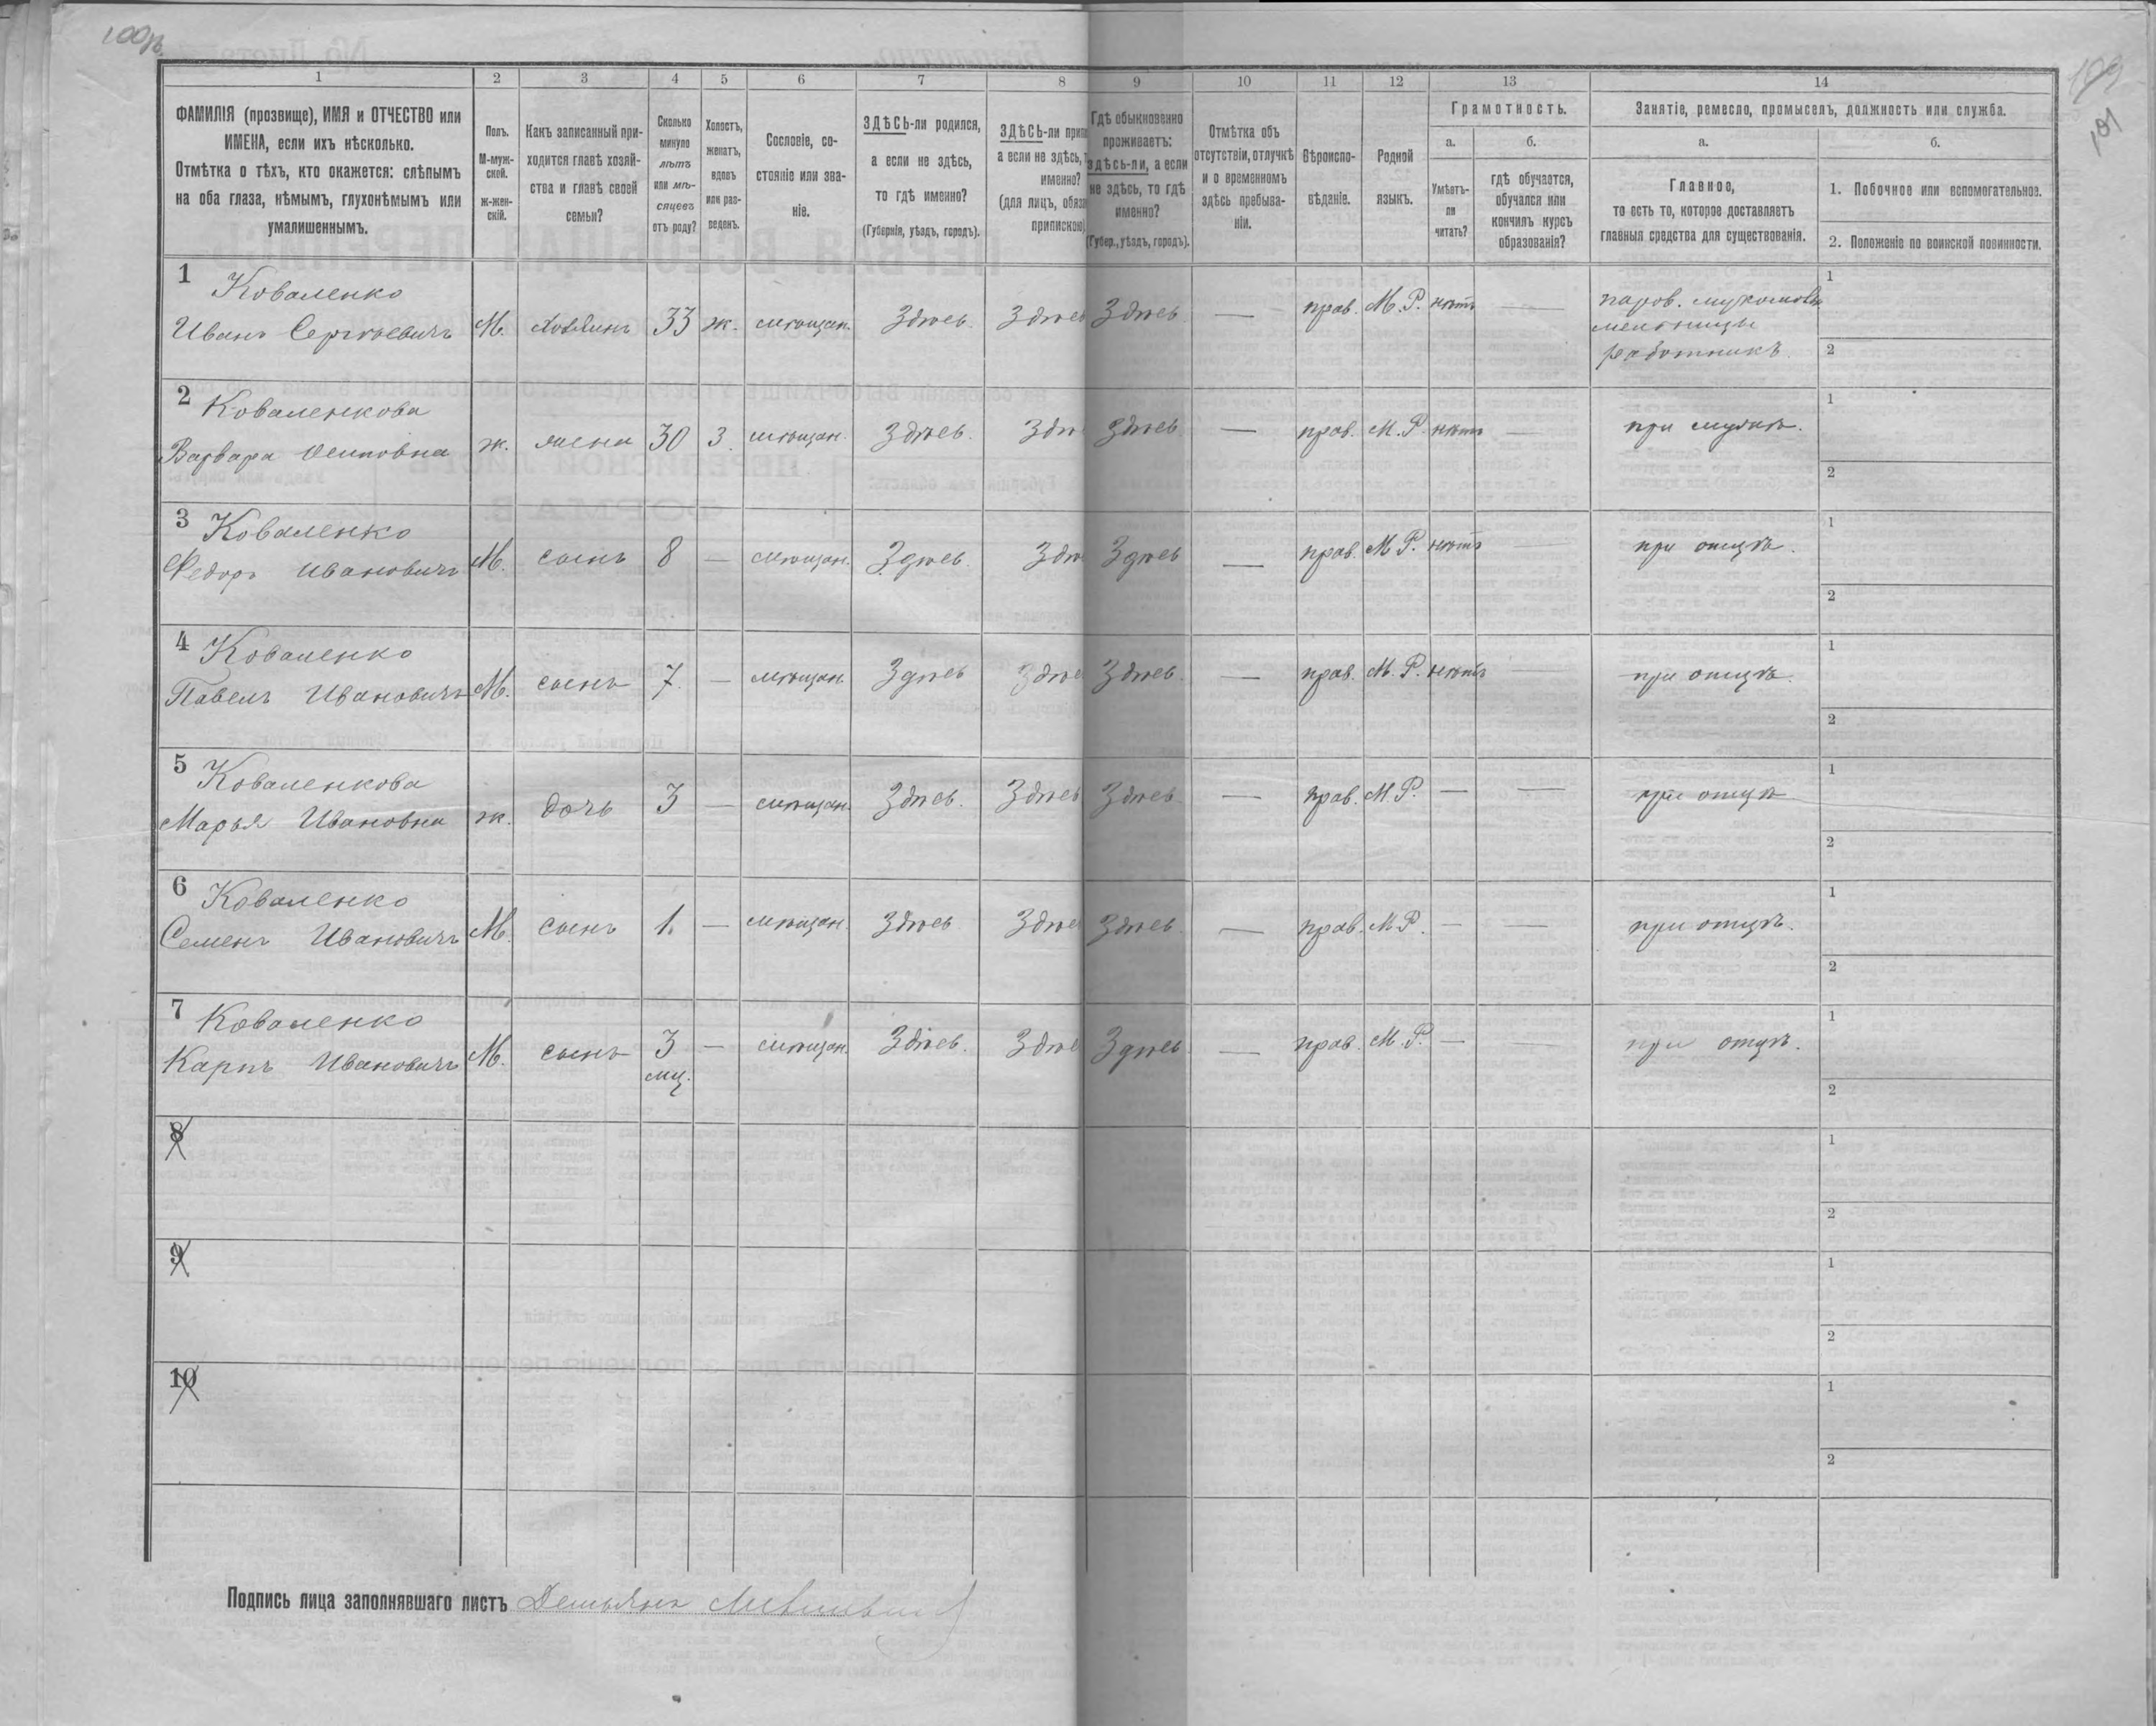 1 2 3 4 5 6 7 8 9 10 11 12 13 14
ФАМИЛІЯ (прозвище), ИМЯ и ОТЧЕСТВО или
ИМЕНА, если ихъ нѣсколько.
Отмѣтка о тѣхъ, кто окажется: слѣпымъ
на оба глаза, нѣмымъ, глухонѣмымъ или
умалишеннымъ.
Полъ.
М-муж-
ской.
ж-жен-
скій.
Какъ записанный при-
ходится главѣ хозяй-
ства и главѣ своей
семьи?
Сколько
минуло
лѣтъ
или мѣ-
сяцевъ
отъ роду?
Холостъ,
женатъ,
вдовъ
или раз-
веденъ.
Сословіе, со-
стояніе или зва-
ніе.
ЗДѢСЬ-ли родился,
а если не здѣсь,
то гдѣ именно?
(Губернія, уѣздъ, городъ).
ЗДѢСЬ-ли припи
а если не здѣсь,
именно?
(для лицъ, обяза
припискою)
Гдѣ обыкновенно
проживаетъ:
здѣсь-ли, а если
не здѣсь, то гдѣ
именно?
(Губер., уѣздъ, городъ).
Отмѣтка объ
отсутствіи, отлучкѣ
и о временномъ
здѣсь пребыва-
ніи.
Вѣроиспо-
вѣданіе.
Родной
языкъ.
Грамотность.
а.
Умѣетъ-
ли
читать?
б.
гдѣ обучается,
обучался или
кончилъ курсъ
образованія?
Занятіе, ремесло, промыселъ, должность или служба.
а.
Главное,
то есть то, которое доставляетъ
главныя средства для существованія.
б.
1. Побочное или вспомогательное.
2. Положеніе по воинской повинности.
1 Коваленко
Иванъ Сергѣевичъ М. хозяинъ 33 ж. мѣщан. Здѣсь Здѣсь Здѣсь — прав. М.Р. нѣтъ — паров. мукомольн
мельницы
работникъ.
1
2
2 Коваленкова
Варвара Осиповна ж. жена 30 З. мѣщан. Здѣсь. Здѣ Здѣсь — прав. М.Р. нѣтъ — при мужѣ.
1
2
3 Коваленко
Федоръ Ивановичъ М. сынъ 8 — мѣщан. Здѣсь. Здѣ Здѣсь — прав. М.Р. нѣтъ — при отцѣ.
1
2
4 Коваленко
Павелъ Ивановичъ М. сынъ 7. — мѣщан. Здѣсь Здѣс Здѣсь. — прав. М.Р. нѣтъ — при отцѣ.
1
2
5 Коваленкова
Марья Ивановна ж. дочь 3 — мѣщан. Здѣсь. Здѣсь Здѣсь — прав. М.Р. — — при отцѣ
1
2
6 Коваленко
Семенъ Ивановичъ М. сынъ 1. — мѣщан. Здѣсь Здѣс Здѣсь. — прав. М.Р. — — при отцѣ.
1
2
7 Коваленко
Карпъ Ивановичъ М. сынъ 3 — мѣщан. Здѣсь. Здѣс Здѣсь — прав. М.Р. — — при отцѣ.
мц.
1
2
8
1
2
9
1
2
10
1
2
Подпись лица заполнявшаго листъ Демьянъ